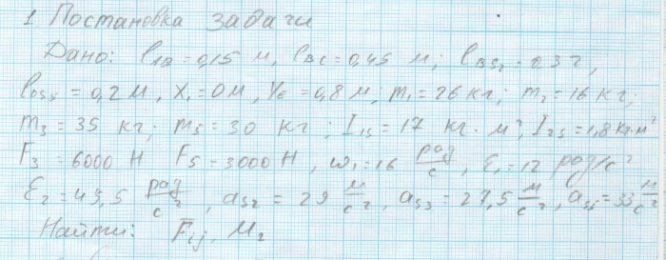 1 Постановка задачи
Дано: l_AB = 0,15 м, l_BC = 0,45 м; l_BS₂ = 0,3
= 0,2 м, X₁ = 0 м, = 0,8 м; m₁ = 26 кг; m₂ = 16 кг;
m₃ = 35 кг; m₅ = 30 кг; I₁ₛ = 17 кг·м², I₂ₛ = 1,8 кг·м²
F₃ = 6000 Н F₅ = 3000 Н, ω₁ = 16 рад/с, ε₁ = 12 рад/с²
ε₂ = 49,5 рад/с², a_S₂ = 29 м/с², a_S₃ = 27,5 м/с², = 33 м/с²
Найти: F̅ij,